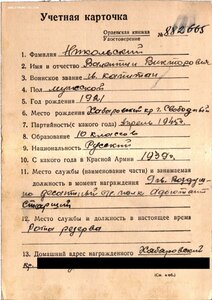 Учетная карточка
Орденская книжка № 882665
Удостоверение
1. Фамилия Никольский
2. Имя и отчество Валентин Викторович
3. Воинское звание гв. капитан
4. Пол мужской
5. Год рождения 1921
6. Место рождения Хабаровский кр. г. Свободный
7. Партийность (с какого года) апрель 1945 г.
8. Образование 10 классов
9. Национальность Русский
10. С какого года в Красной Армии 1939 г.
11. Место службы (наименование части) и занимаемая
должность в момент награждения 9 гв. Воздуш-
но десантный полк Адъютант
Старший
12. Место службы и должность в настоящее время
Рота резерва
13. Домашний адрес награжденного Хабаровский
кр.
(См. на об.)